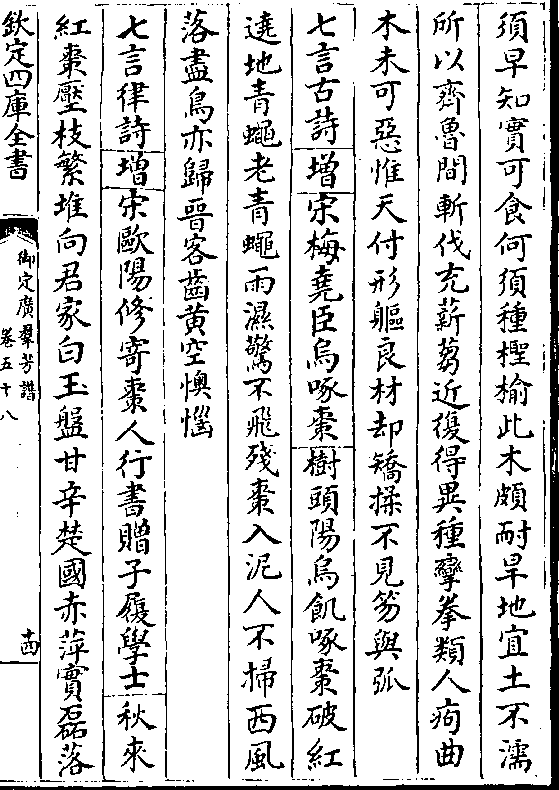 須早知實可食何須種檉榆此木頗耐旱地宜土不濡
所以齊魯間斬伐充薪芻近復得異種孿拳類人痀曲
木未可惡惟天付形軀良材却矯揉不見笏與弧
七言古詩增宋梅堯臣烏啄棗樹頭陽烏飢啄棗破紅
遶地青蠅老青蠅雨濕驚不飛殘棗入泥人不掃西風
落盡鳥亦歸晉客齒黄空懊惱
七言律詩增宋歐陽修寄棗人行書贈子履學士秋來
紅棗壓枝繁堆向君家白玉盤甘辛楚國赤萍實磊落
欽定四庫全書
御定廣羣芳譜
卷五十八
十四